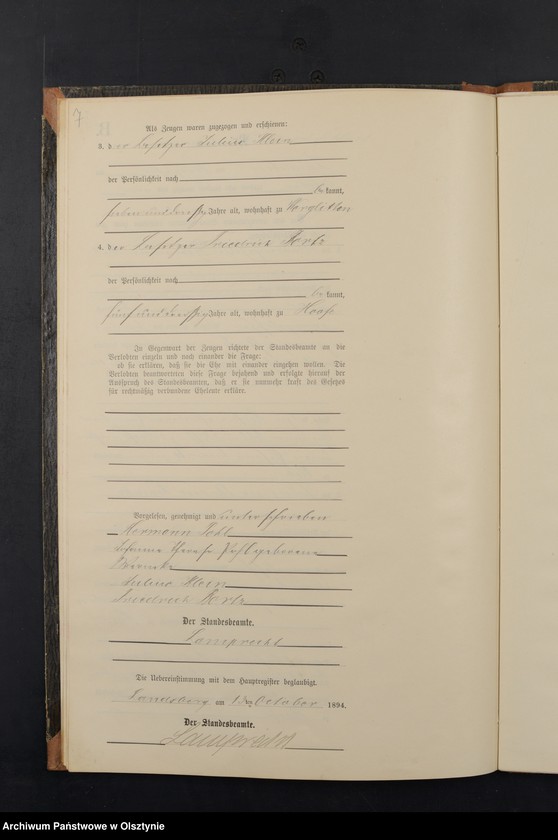 7
Als Zeugen waren zugezogen und erschienen:
3. der Besitzer Julius Klein
der Persönlichkeit nach
be kannt,
sieben und dreißig Jahre alt, wohnhaft zu Worglitten
4. der Besitzer Friedrich
der Persönlichkeit nach
be kannt,
fünf und dreißig Jahre alt, wohnhaft zu
In Gegenwart der Zeugen richtete der Standesbeamte an die
Verlobten einzeln und nach einander die Frage:
ob sie erklären, daß sie die Ehe mit einander eingehen wollen. Die
Verlobten beantworteten diese Frage bejahend und erfolgte hierauf der
Ausspruch des Standesbeamten, daß er sie nunmehr kraft des Gesetzes
für rechtmäßig verbundene Eheleute erkläre.
Vorgelesen, genehmigt und unterschrieben
Hermann Pohl
Johanne Therese Pohl geborene
Julius Klein
Friedrich
Der Standesbeamte.
Lamprecht
Die Uebereinstimmung mit dem Hauptregister beglaubigt.
Landsberg am October 1894.
Der Standesbeamte.
Lamprecht
Archiwum Państwowe w Olsztynie